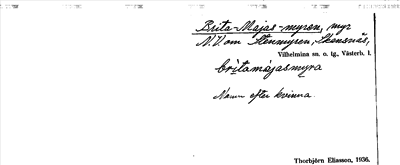 Brita-Majas-myren, myr
N.V. om Stenmyren, Skansnäs,
Vilhelmina sn. o. tg., Västerb. l.
britamájasmyra
Namn efter kvinna.
Thorbjörn Eliasson, 1936.